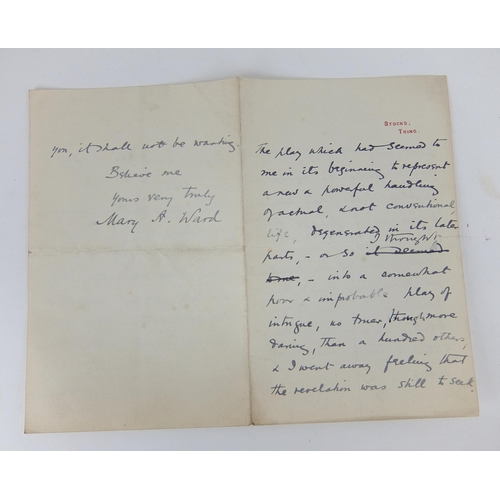 you, it shall not be wanting.
Believe me
yours very truly
Mary A. Ward
STOCKS,
TRING.
The play which had seemed to
me in its beginning to represent
a new & powerful handling
of actual, & not conventional,
life, degenerated in its later
parts, – or so I thought it seemed
– into a somewhat
poor & improbable play of
intrigue, no truer, though more
daring, than a hundred others,
& I went away feeling that
the revelation was still to seek.